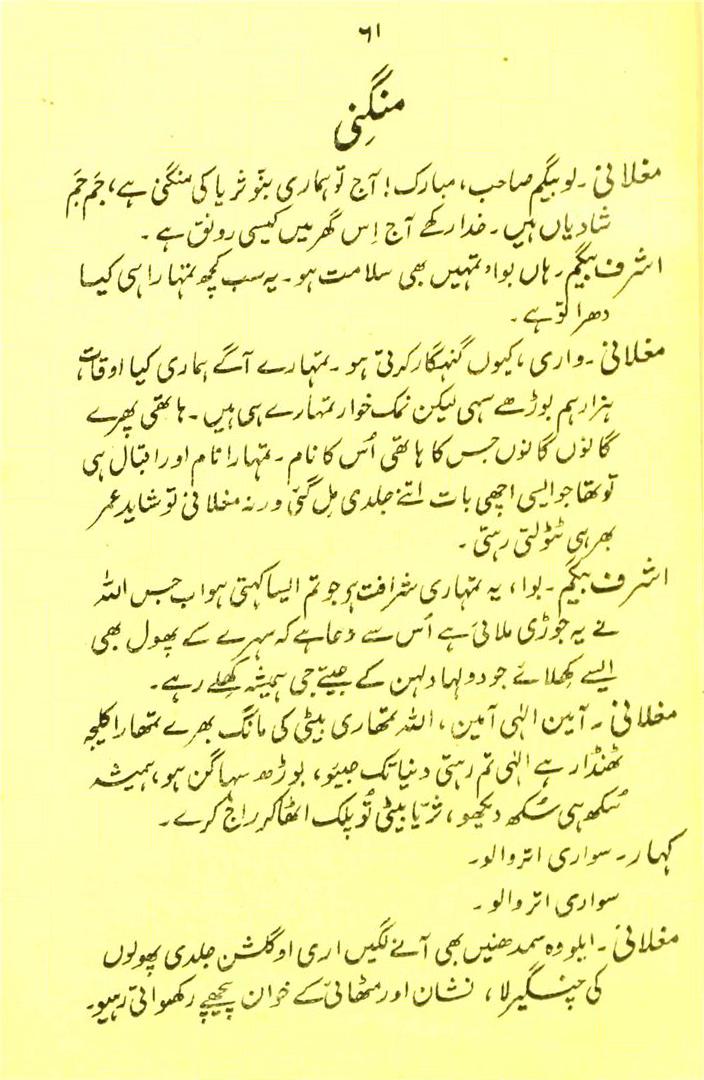 ۶۱
منگنی
مغلانی ۔ لو بیگم صاحب، مبارک! آج تو ہماری بنّو ثریا کی منگنی ہے، جَم جَم
شادیاں ہیں ۔ خدا رکھے آج اِس گھر میں کیسی رونق ہے ۔
اشرف بیگم ۔ ہاں بوا، تمہیں بھی سلامت ہو ۔ یہ سب کچھ تمہارا ہی کیسا
دھرا تو ہے ۔
مغلانی ۔ واری ، کیوں گنہگار کرتی ہو ۔ تمہارے آگے ہماری کیا اوقات
ہزار ہم بوڑھے سہی لیکن نمک خوار تمہارے ہی ہیں ۔ ہاتھی پھرے
گانوں گانوں جس کا ہاتھی اُس کا نام ۔ تمہارا نام اور اقبال ہی
تو تھا جو ایسی اچھی بات اتنے جلدی مل گئی ورنہ مغلانی تو شاید عمر
بھر ہی ٹٹولتی رہتی ۔
اشرف بیگم ۔ بوا ، یہ تمہاری شرافت ہے جو تم ایسا کہتی ہو اب جس اللہ
نے یہ جوڑی ملائی ہے اُس سے دُعا ہے کہ سہرے کے پھول بھی
ایسے کِھلائے جو دولہا دلہن کے جیتے جی ہمیشہ کِھلے رہے ۔
مغلانی ۔ آمین الہٰی آمین ، اللہ تمھاری بیٹی کی مانگ بھرے تمھارا کلیجہ
ٹھنڈا رہے الہٰی تم رہتی دنیا تک جیئو ، بوڑھ سہاگن ہو ، ہمیشہ
سُکھ ہی سُکھ دیکھو ، ثریّا بیٹی تُو پلک اٹھا کر راج کرے ۔
کہار ۔ سواری اتروا لو ۔
سواری اتروا لو ۔
مغلانی ۔ ایلو وہ سمدھنیں بھی آنے لگیں اری او گلشن جلدی پھولوں
کی چنگیر لا ، نشان اور مٹھائی کے خوان پیچھے رکھواتی رہیو ۔